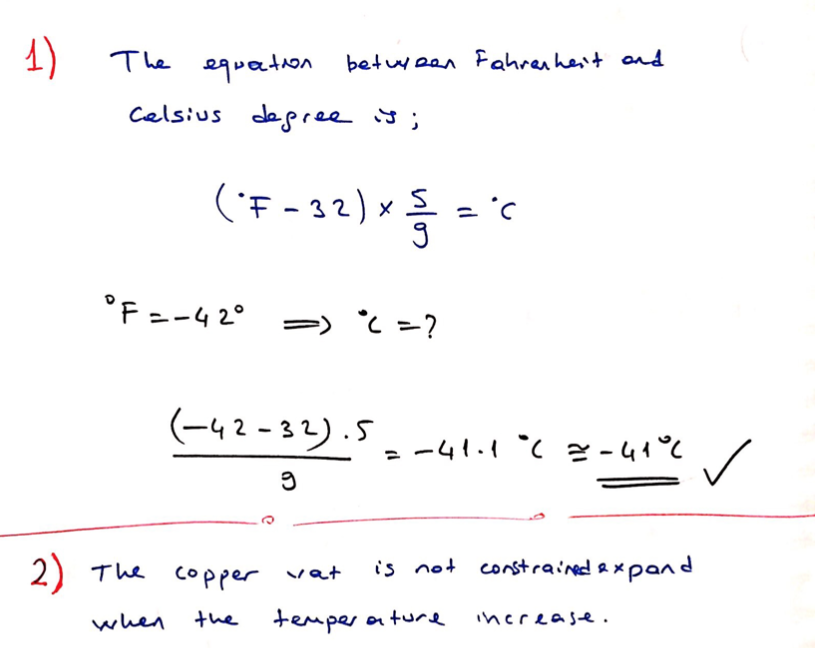 1) The equation between Fahrenheit and
Celsius degree is;
(°F - 32) × 5/9 = °C
°F = -42° ⟹ °C = ?
(-42 - 32) . 5 / 9 = -41.1 °C ≅ -41°C ✓
2) The copper vat is not constrained expand
when the temperature increase.